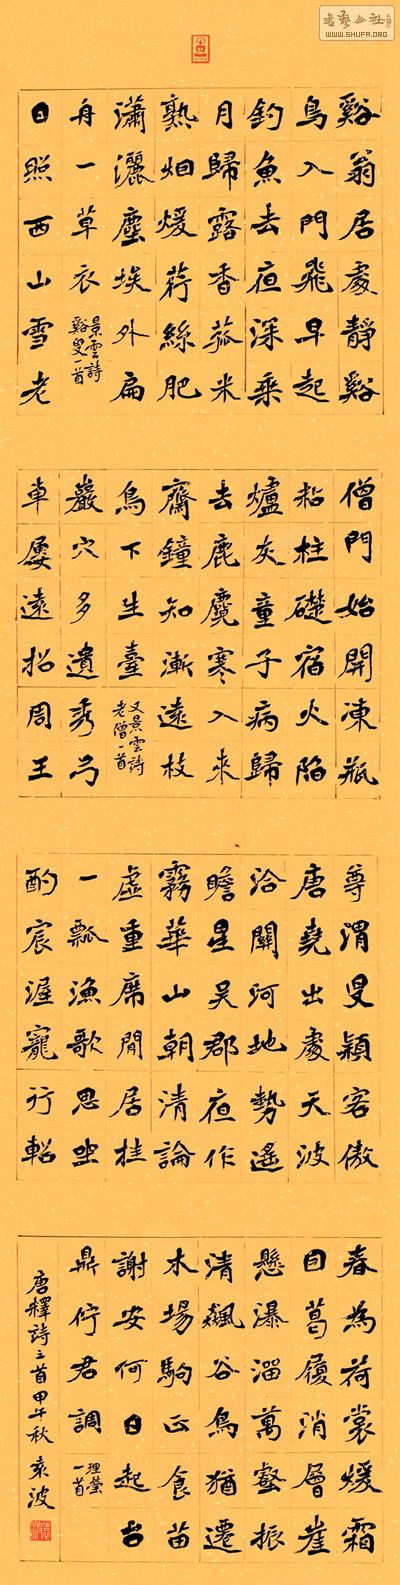 書藝公社
WWW.SHUFA.ORG
谿翁居處靜谿
鳥入門飛早起
釣魚去夜深乘
月歸露香菰米
熟烟煖荇絲肥
瀟灑塵埃外扁
舟一草衣
景雲詩
谿叟一首
日照西山雪老
僧門始開凍瓶
粘柱礎宿火陷
爐灰童子病歸
去鹿麑寒入來
齋鐘知漸遠枝
鳥下生臺
又景雲詩
老僧一首
巖穴多遺秀弓
車屢遠招周王
尊渭叟穎客傲
唐堯出處天波
洽關河地勢遙
瞻星吳郡夜作
霧華山朝清論
虛重席閒居挂
一瓢漁歌思坐
酌宸渥寵行軺
春為荷裳煖霜
因葛履消層崖
懸瀑溜萬壑振
清飆谷鳥猶遷
木場駒正食苗
謝安何日起台
鼎佇君調
理瑩
一首
唐釋詩三首甲午秋袁波